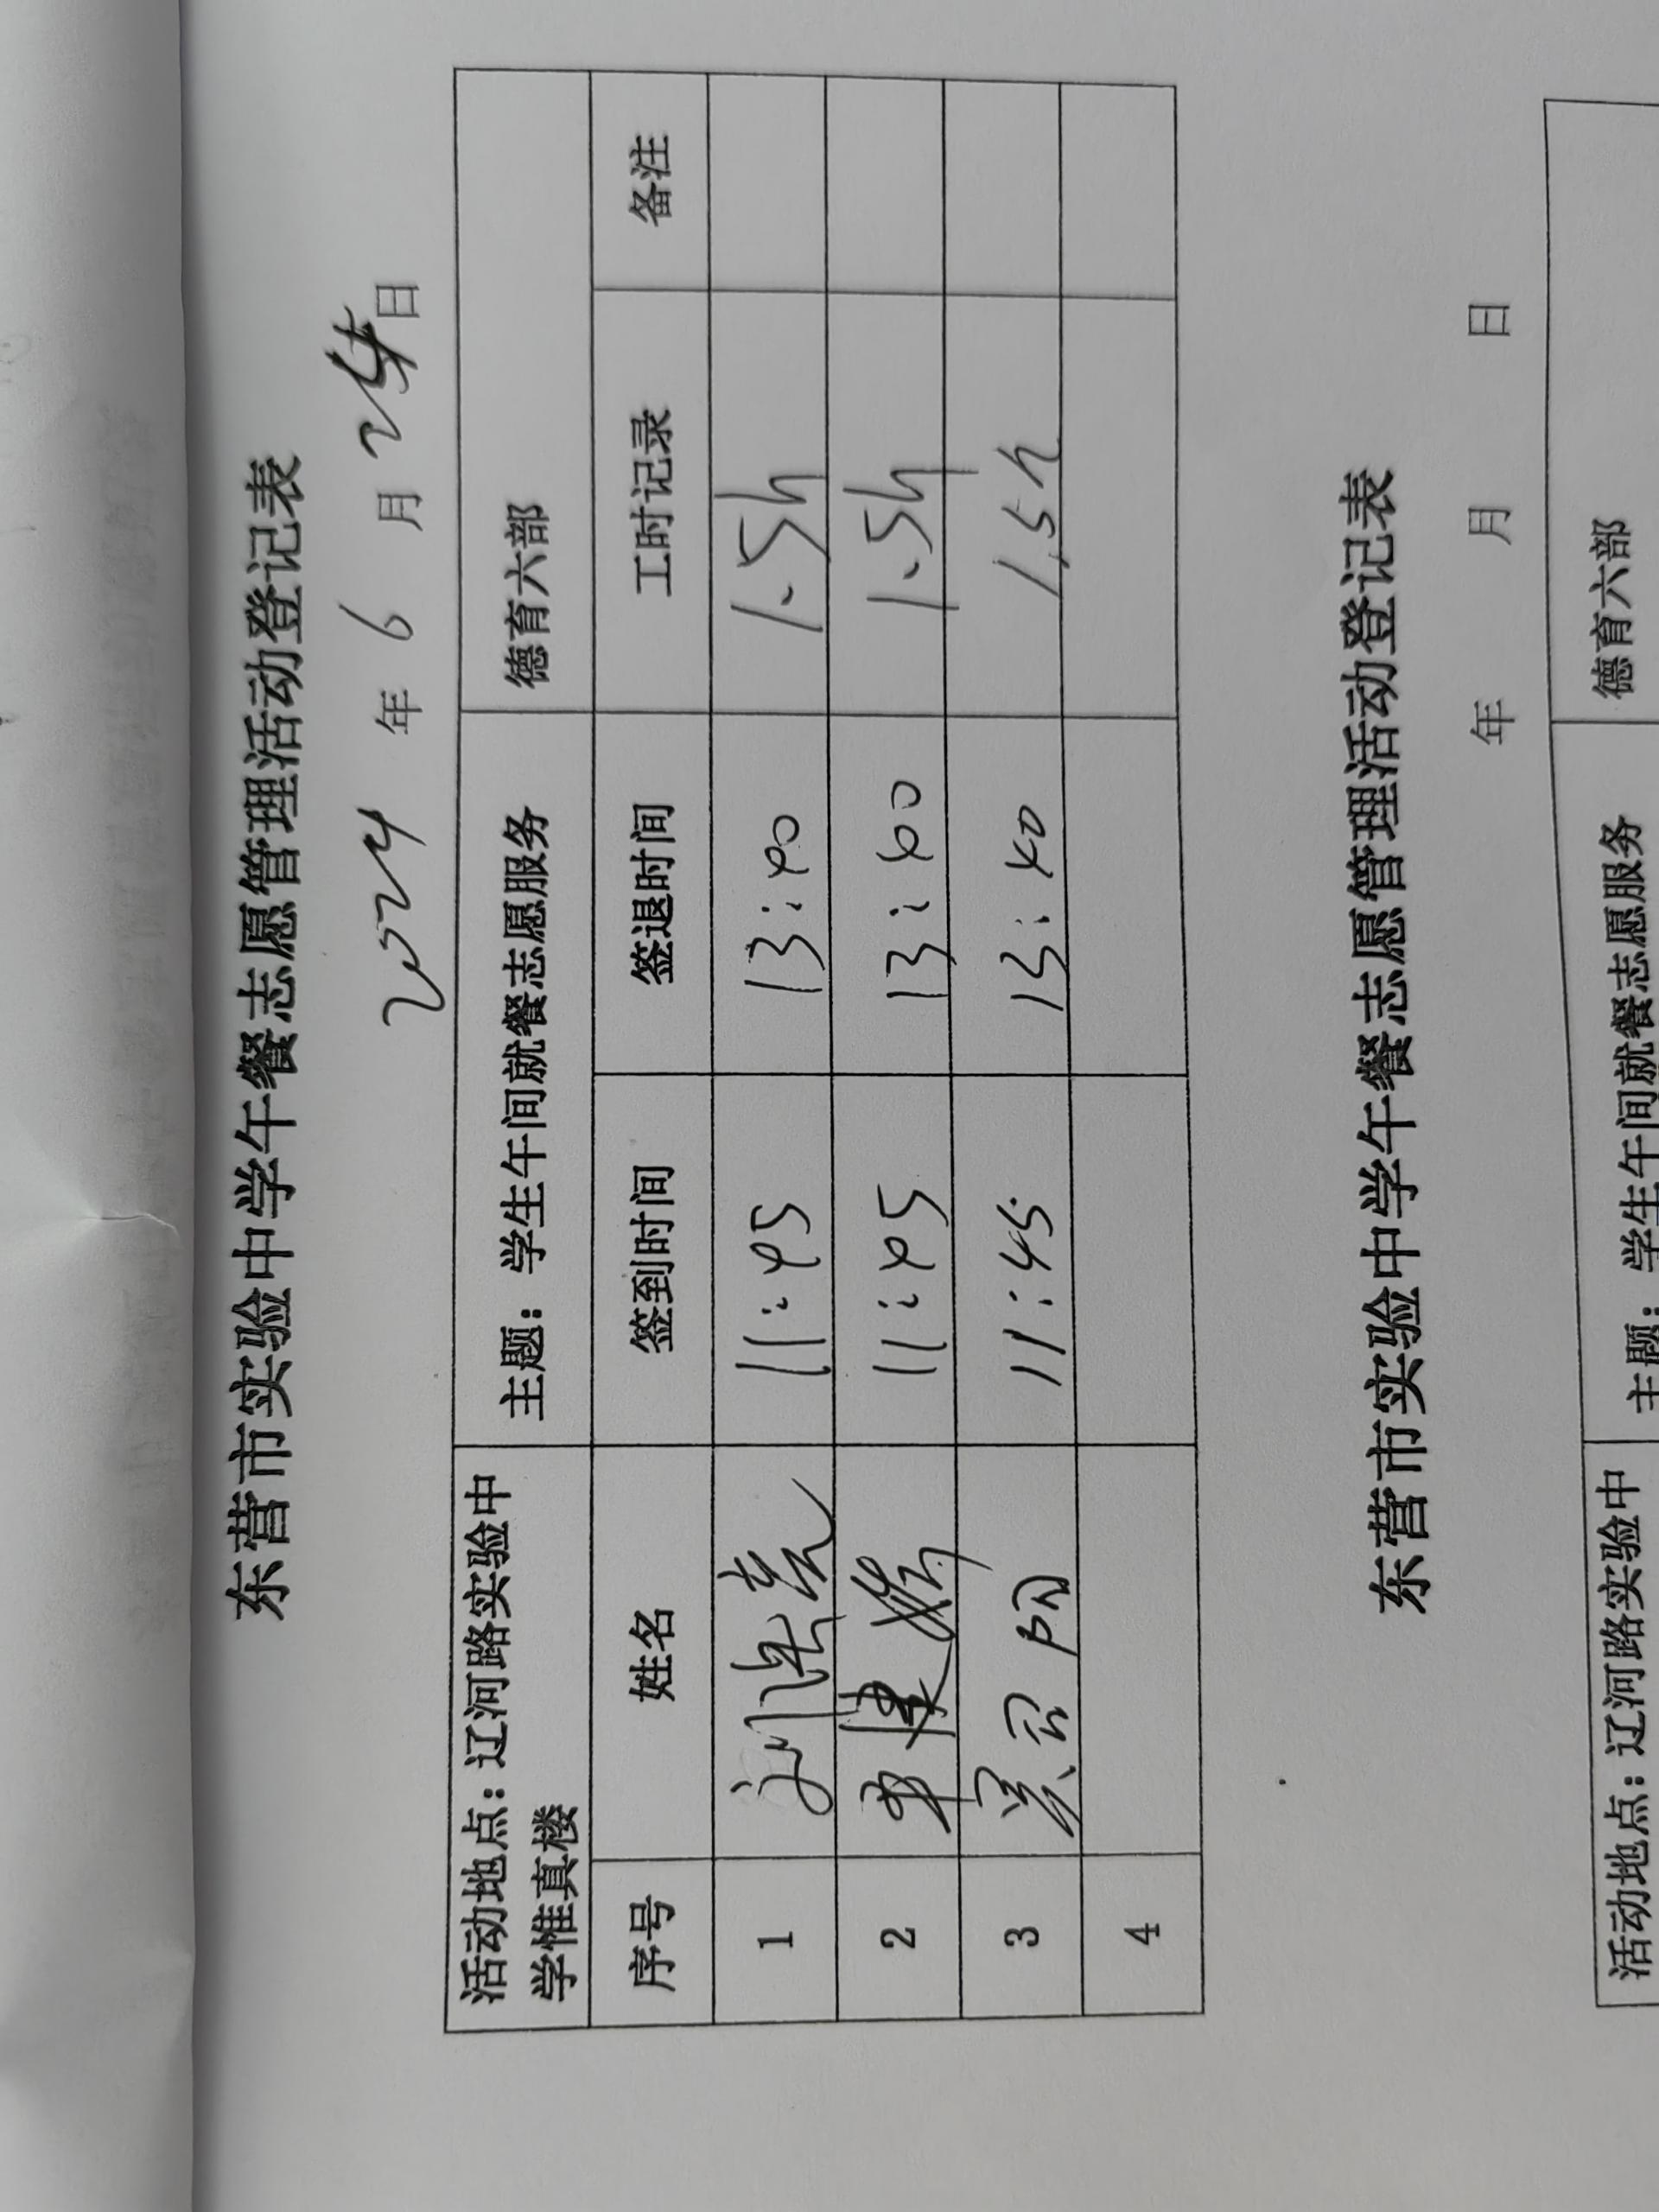 东营市实验中学午餐志愿管理活动登记表
2024 年 6 月 日
活动地点：辽河路实验中学惟真楼 主题：学生午间就餐志愿服务 德育六部
序号 姓名 签到时间 签退时间 工时记录 备注
1 11:45 13:40 1.5h
2 11:45 13:40 1.5h
3 11:45 13:40 1.5h
4
东营市实验中学午餐志愿管理活动登记表
年 月 日
活动地点：辽河路实验中 主题：学生午间就餐志愿服务 德育六部